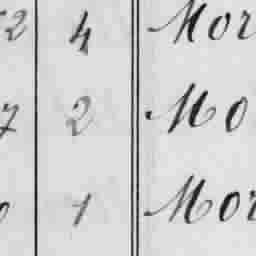 2 4 Mor
7 2 Mo
1 Mor